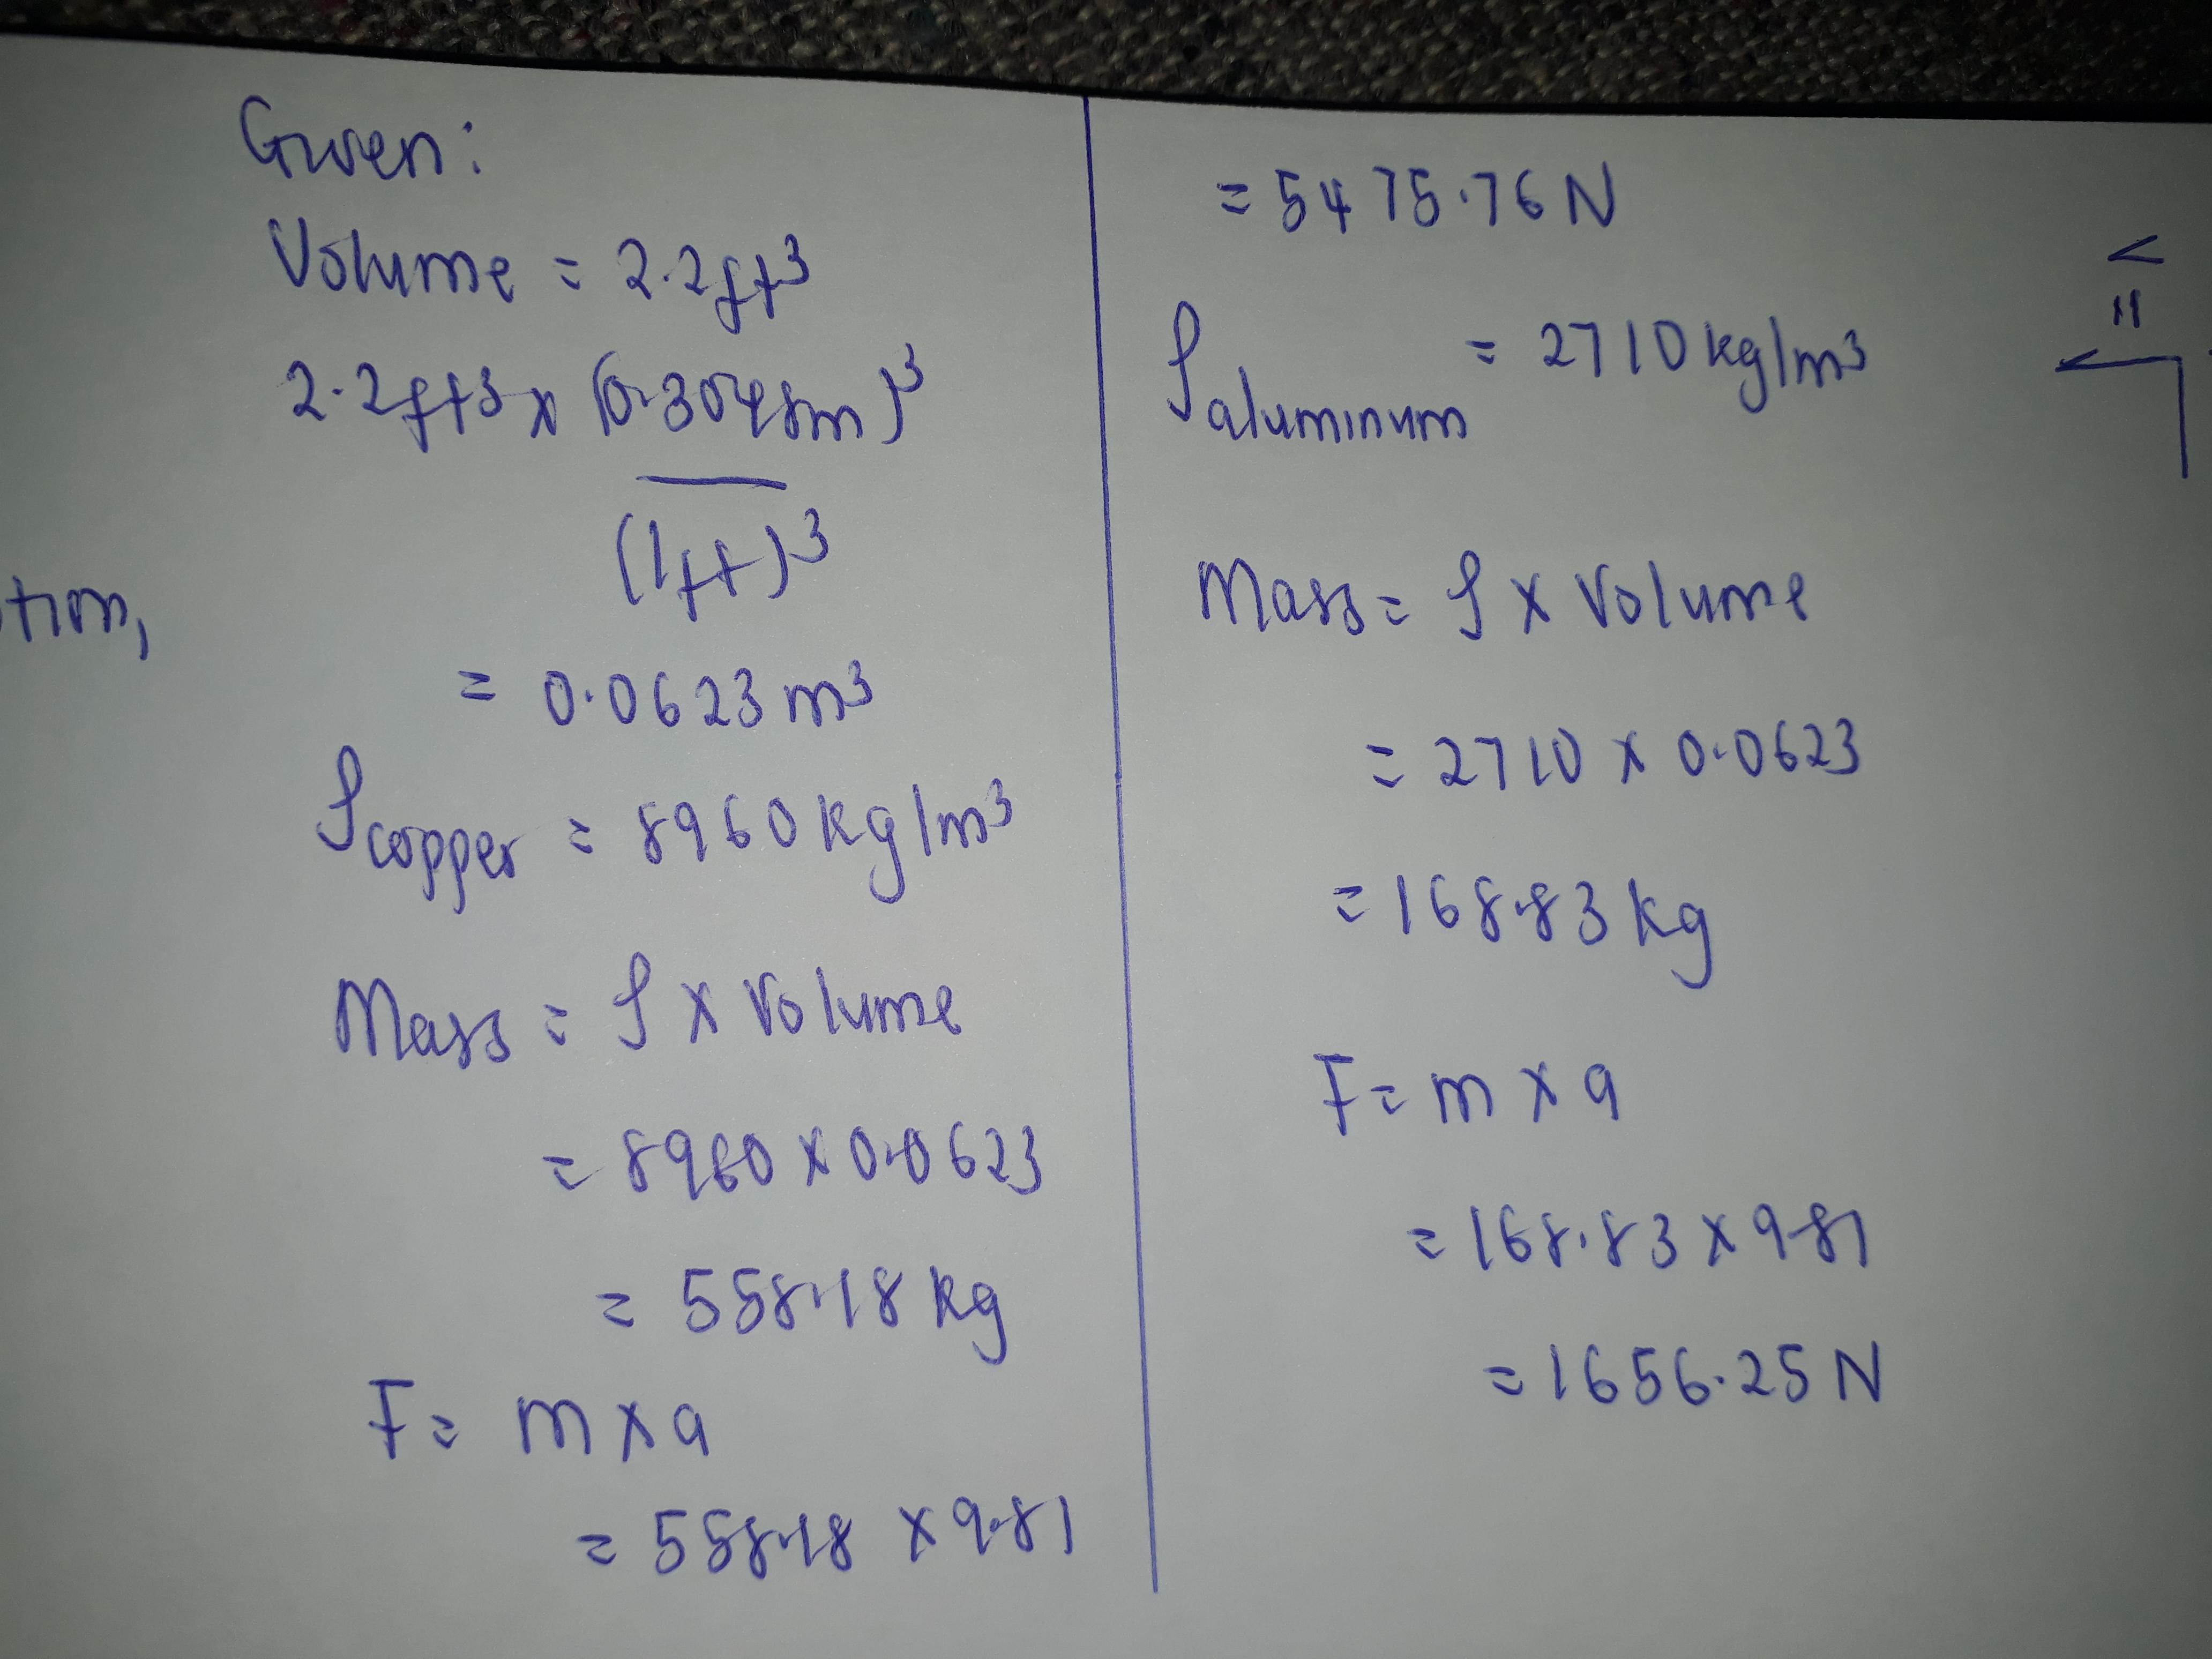 Given:
Volume = 2.2ft³
2.2ft³ x (0.3048m)³
(1ft)³
= 0.0623m³
ρcopper = 8960kg/m³
Mass = ρ x Volume
= 8960 x 0.0623
= 558.18kg
F = m x a
= 558.18 x 9.81
= 5475.76N
ρaluminum = 2710kg/m³
Mass = ρ x Volume
= 2710 x 0.0623
= 168.83kg
F = m x a
= 168.83 x 9.81
= 1656.25N